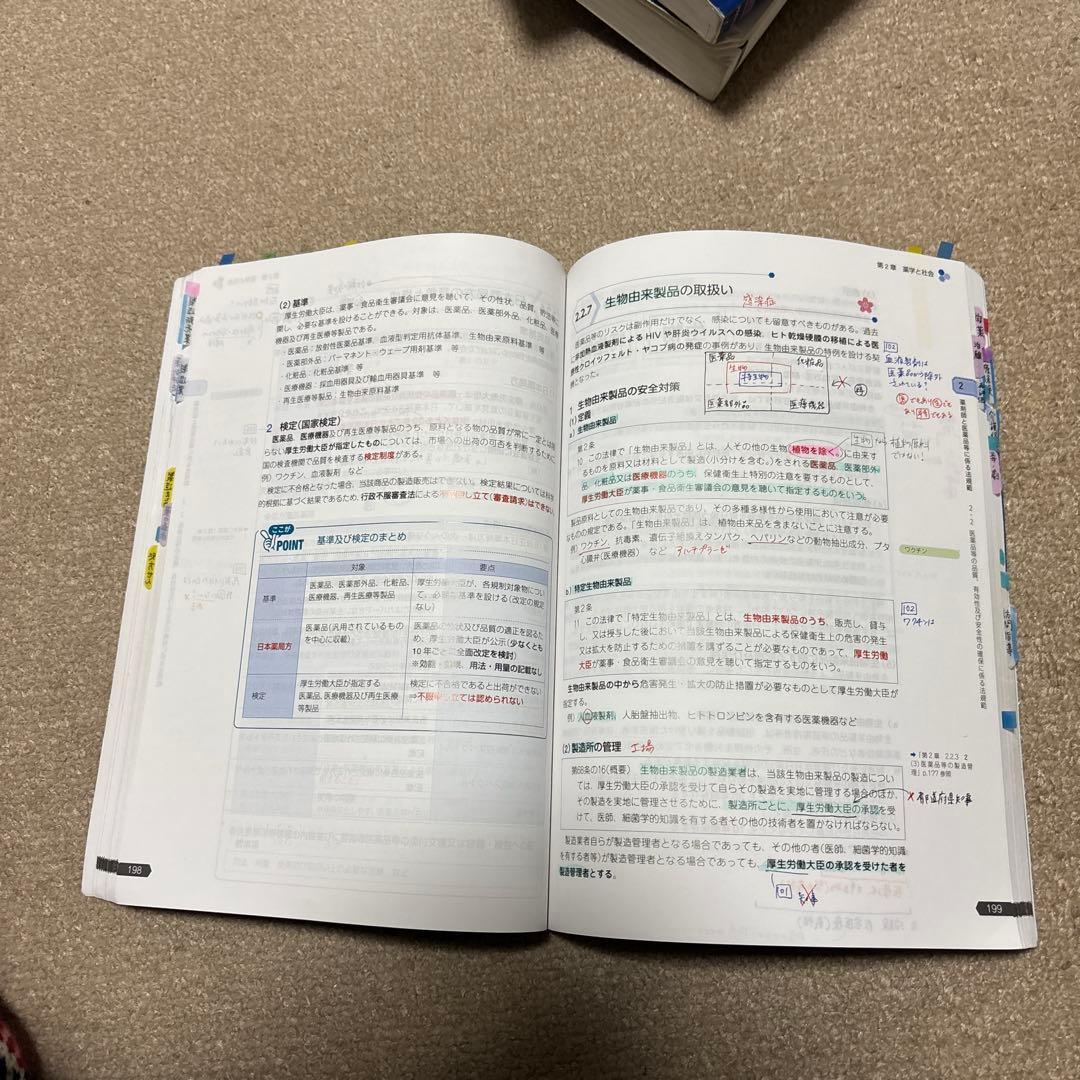 (2) 基準
厚生労働大臣は、薬事・食品衛生審議会に意見を聴いて、その性状、品質、
関し、必要な基準を設けることができる。対象は、医薬品、医薬部外品、化粧品、医療
機器及び再生医療等製品である。
・医薬品：放射性医薬品基準、血液型判定用抗体基準、生物由来原料基準　等
・医薬部外品：パーマネント・ウェーブ用剤基準　等
・化粧品：化粧品基準　等
・医療機器：採血用器具及び輸血用器具基準　等
・再生医療等製品：生物由来原料基準
2 検定(国家検定)
医薬品、医療機器及び再生医療等製品のうち、原料となる物の品質が常に一定とは限
らない厚生労働大臣が指定したものについては、市場への出荷の可否を判断するために
国の検査機関で品質を検査する検定制度がある。
例）ワクチン、血液製剤　など
検定に不合格となった場合、当該商品の製造販売はできない。検定結果については科学
的根拠に基づく結果であるため、行政不服審査法による不服申し立て(審査請求)はできない
ここが
POINT 基準及び検定のまとめ
対象 要点
基準
医薬品、医薬部外品、化粧品、
医療機器、再生医療等製品
厚生労働大臣が、各規制対象物につい
て、必要な基準を設ける(改定の規定
なし)
日本薬局方
医薬品(汎用されているもの
を中心に収載)
医薬品の性状及び品質の適正を図るた
め、厚生労働大臣が公示(少なくとも
10年ごとに全面改定を検討)
※効能・効果、用法・用量の記載なし
検定
厚生労働大臣が指定する
医薬品、医療機器及び再生医療
等製品
検定に不合格であると出荷ができない
⇒不服申し立ては認められない
198
第2章　薬学と社会
2.2.7 生物由来製品の取扱い
感染症
医薬品等のリスクは副作用だけでなく、感染についても留意すべきものがある。過去
に非加熱血液製剤によるHIVや肝炎ウイルスへの感染、ヒト乾燥硬膜の移植による医
原性クロイツフェルト・ヤコブ病の発症の事例があり、生物由来製品の特例を設ける契
機となった。
医薬品 化粧品
生物
特生物
医薬部外品 医療機器
102
血液製剤は
医薬品から除外
されている?
1 生物由来製品の安全対策
(1) 定義
a) 生物由来製品
第2条
10 この法律で「生物由来製品」とは、人その他の生物(植物を除く。)に由来す
るものを原料又は材料として製造(小分けを含む。)をされる医薬品、医薬部外
品、化粧品又は医療機器のうち、保健衛生上特別の注意を要するものとして、
厚生労働大臣が薬事・食品衛生審議会の意見を聴いて指定するものをいう。
生物なら植物原料
ではない!
製品原料としての生物由来製品であり、その多種多様性から使用において注意が必要
なものの規定である。「生物由来製品」は、植物由来品を含まないことに注意する。
例）ワクチン、抗毒素、遺伝子組換えタンパク、ヘパリンなどの動物抽出成分、ブタ
心臓弁(医療機器)　など
アルテプラーゼ
ワクチン
b) 特定生物由来製品
第2条
11 この法律で「特定生物由来製品」とは、生物由来製品のうち、販売し、貸与
し、又は授与した後において当該生物由来製品による保健衛生上の危害の発生
又は拡大を防止するための措置を講ずることが必要なものであって、厚生労働
大臣が薬事・食品衛生審議会の意見を聴いて指定するものをいう。
102
ワクチンは
生物由来製品の中から危害発生・拡大の防止措置が必要なものとして厚生労働大臣が
指定する。
例）人血液製剤、人胎盤抽出物、ヒトトロンビンを含有する医療機器など
(2) 製造所の管理
工場
第68条の16(概要)　生物由来製品の製造業者は、当該生物由来製品の製造につい
ては、厚生労働大臣の承認を受けて自らその製造を実地に管理する場合のほか、
その製造を実地に管理させるために、製造所ごとに、厚生労働大臣の承認を受
けて、医師、細菌学的知識を有する者その他の技術者を置かなければならない。
➡「第2章　2.2.3　2
(3)医薬品等の製造管
理」p.177参照
×都道府県知事
製造業者自らが製造管理者となる場合であっても、その他の者(医師、細菌学的知識
を有する者等)が製造管理者となる場合であっても、厚生労働大臣の承認を受けた者を
製造管理者とする。
101
2
薬剤師と医薬品等に係る法規範
2・2 医薬品等の品質、有効性及び安全性の確保に係る法規範
199